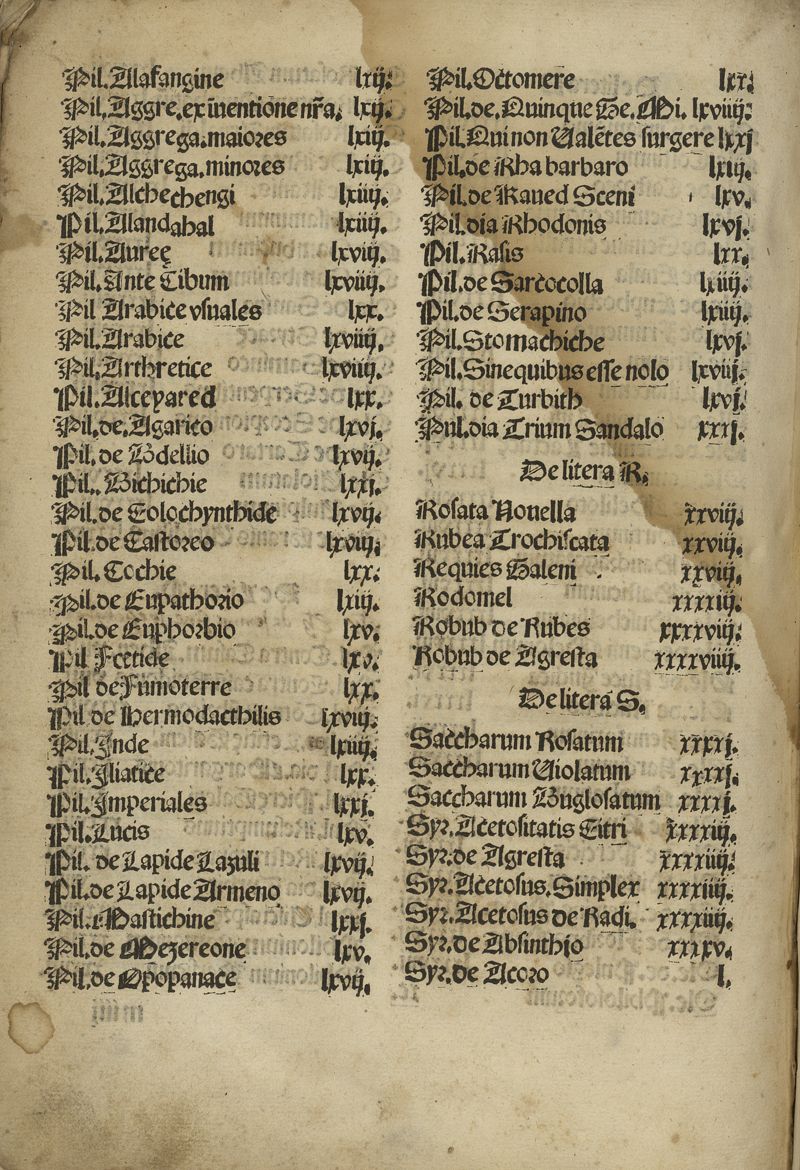 Pil.Alafangine lxij.
Pil.Aggre.ex īuentione nr̄a. lxij.
Pil.Aggrega.maiores lxiij.
Pil.Aggrega.minores lxiij.
Pil.Alchechengi lxiiij.
Pil.Alandahal lxiiij.
Pil.Auree lxviij.
Pil.Ante Cibum lxviiij.
Pil Arabice vsuales lxx.
Pil.Arabice lxviiij.
Pil.Arthretice lxviiij.
Pil.Alcepared lxx.
Pil.de.Agarico lxvj.
Pil.de Bdellio lxvij.
Pil.Bichichie lxxj.
Pil.de Colochynthide lxvij.
Pil.de Castoreo lxviij.
Pil.Cochie lxx.
Pil.de Eupathorio lxiij.
Pil.de Euphorbio lxv.
Pil Fetide lxv.
Pil de Fumoterre lxx.
Pil de Hermodacthilis lxviij.
Pil.Inde lxiiij.
Pil.Iliatice lxx.
Pil.Imperiales lxxj.
Pil.Lucis lxv.
Pil. de Lapide Lazuli lxvij.
Pil.de Lapide Armeno lxvij.
Pil.Mastichine lxxj.
Pil.de Mezereone lxv.
Pil.de Opopanace lxvij.
Pil.Octomere lxx.
Pil.de.Quinque Ge.Mi. lxviiij.
Pil.Qui non Ualētes surgere lxxj
Pil.de Rha barbaro lxiij.
Pil.de Raued Sceni lxv.
Pil.dia Rhodonis lxvj.
Pil.Rasis lxx.
Pil.de Sarcocolla lxiiij.
Pil.de Serapino lxiiij.
Pil.Stomachiche lxvj.
Pil.Sinequibus esse nolo lxviij.
Pil. de Turbith lxvj.
Pul.dia Trium Sandalo xxxj.
De litera R.
Rosata Nouella xxviij.
Rubea Trochiscata xxviij.
Requies Galeni xxviij.
Rodomel xxxxiij.
Robub de Rubes xxxxviij.
Robub de Agresta xxxxviiij.
De litera S.
Saccharum Rosatum xxxxj.
Saccharum Uiolatum xxxxj.
Saccharum Buglosatum xxxxj.
Syr.Acetositatis Citri xxxxiij.
Syr.de Agresta xxxxiiij.
Syr.Acetosus.Simplex xxxxiiij.
Syr.Acetosus de Radi. xxxxiiij.
Syr.de Absinthio xxxxv.
Syr.de Acoro l.